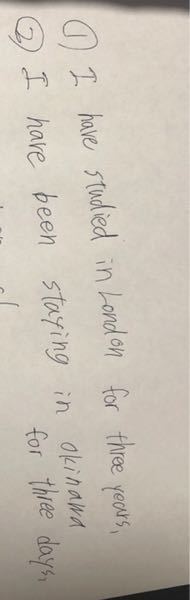 ① I have studied in London for three years,
② I have been staying in okinawa
for three days,